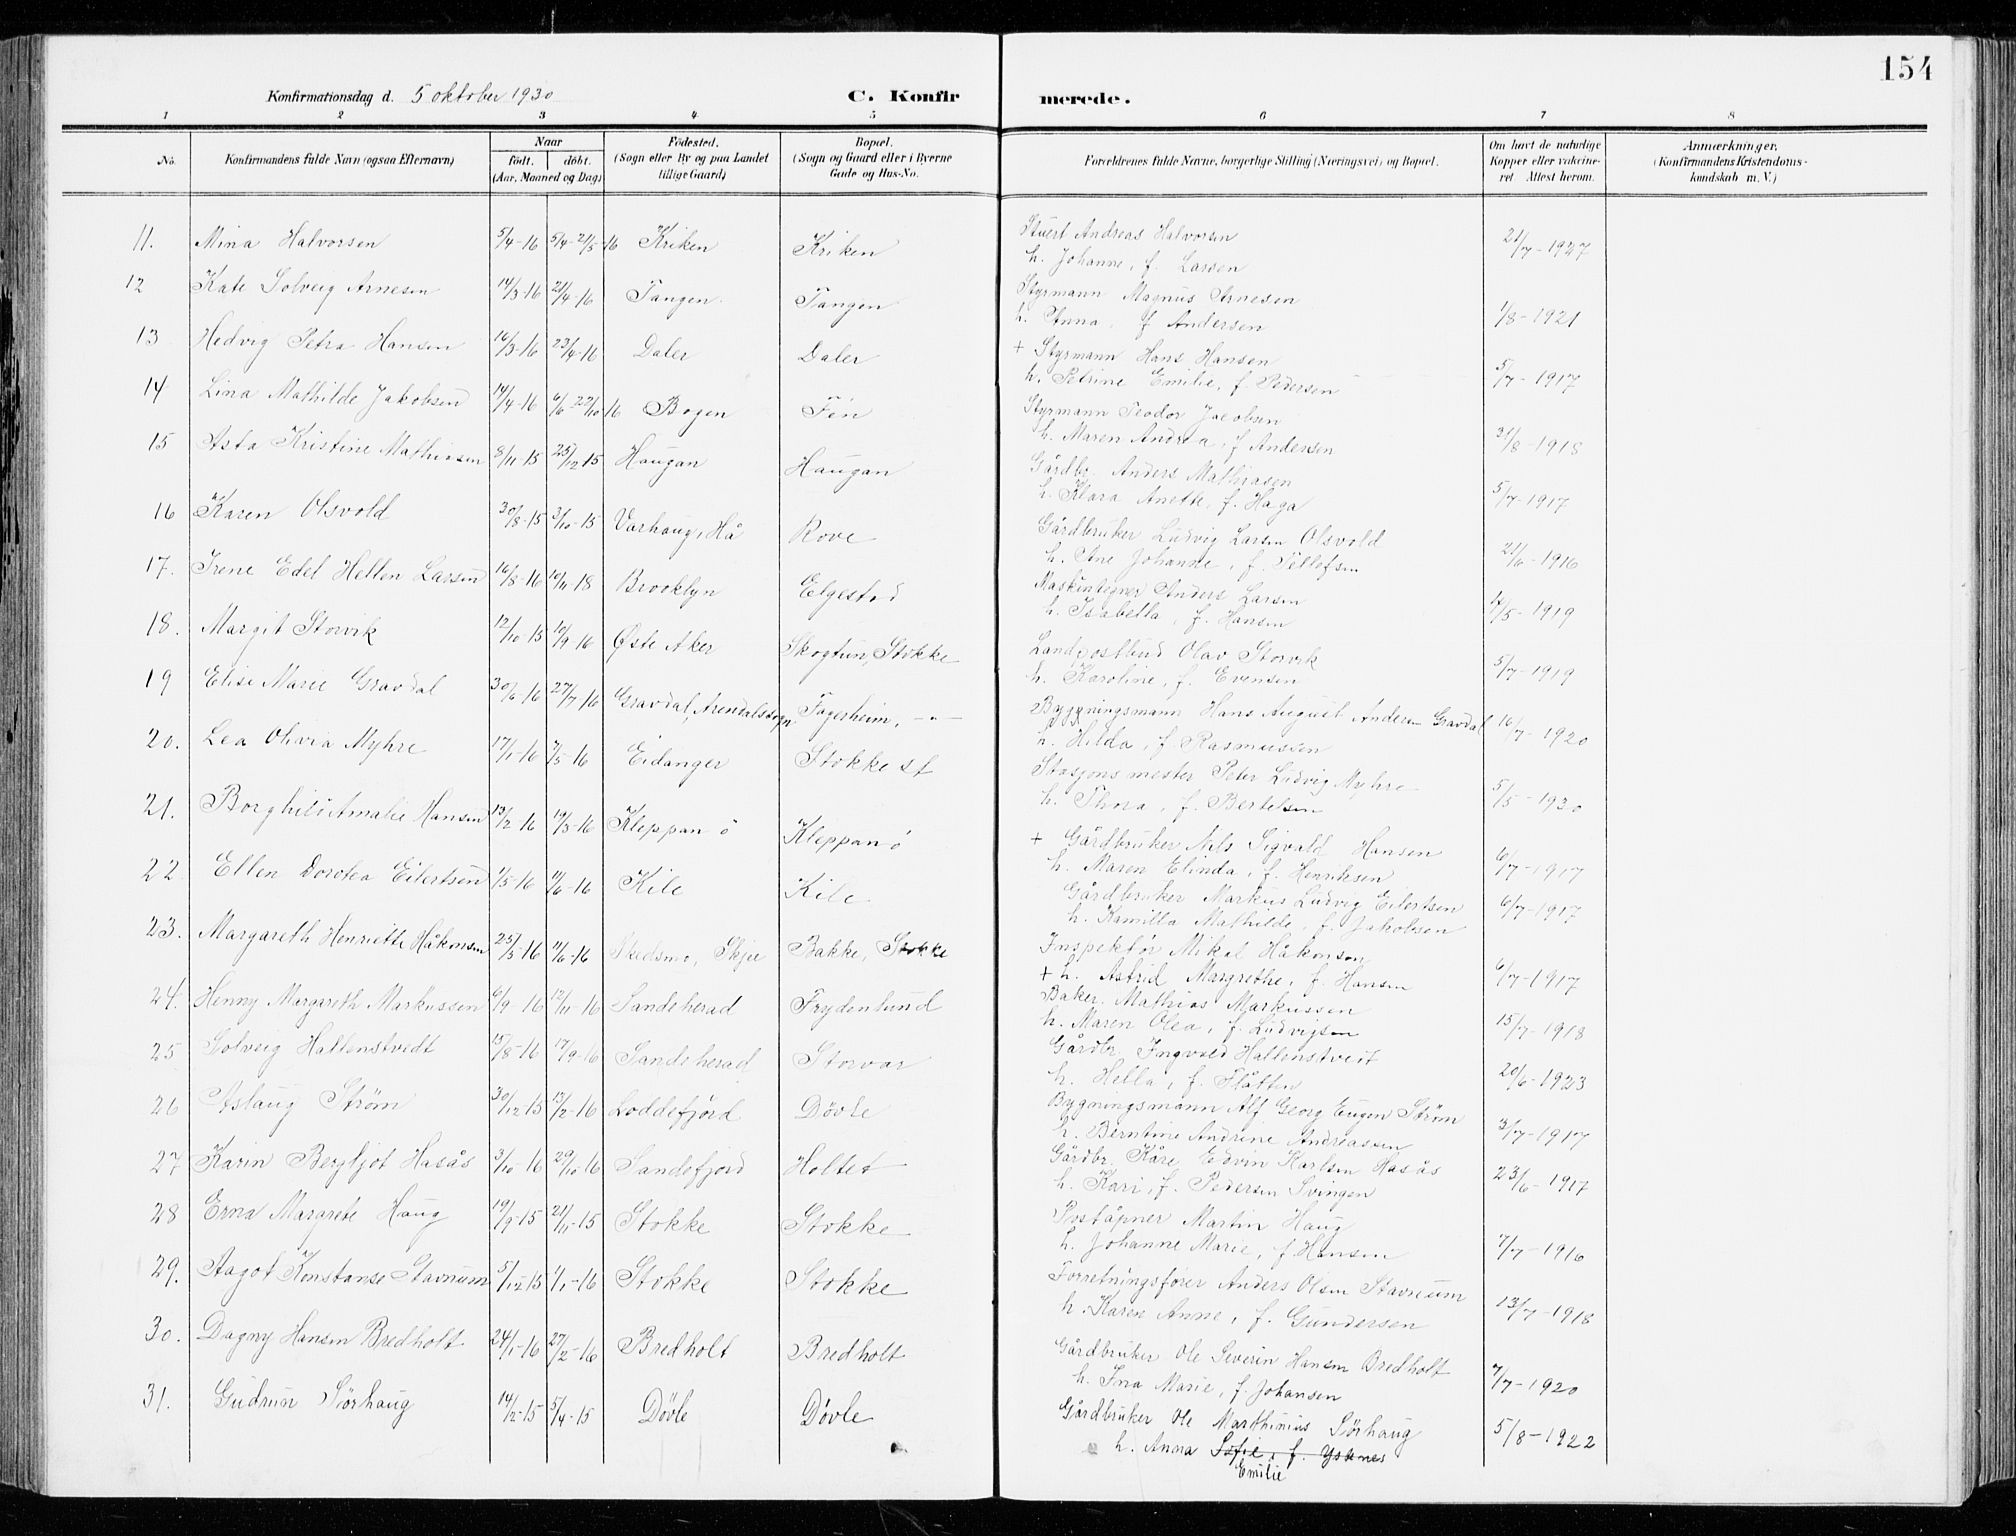 154
Konfirmationsdag d. 5 oktober 1930
C. Konfir merede.
1 2 3 4 5 6 7 8
No. Konfirmandens fulde Navn (ogsaa Efternavn) Naar født. døbt. (Aar, Maaned og Dag) Fødested. (Sogn eller By og paa Landet tillige Gaard) Bopæl. (Sogn og Gaard eller i Byerne Gade og Hus-No. Forældrenes fulde Navne, borgerlige Stilling (Næringsvei) og Bopæl. Om havt de naturlige Kopper eller vakcineret. Attest herom. Anmærkninger. (Konfirmandens Kristendomskundskab m. V.)
11. Mina Halvorsen 5/4-16 5/4-21/5-16 Kriken Kriken Stuert Andreas Halvorsen 21/7-1927
h. Johanne, f. Larsen
12 Kate Solveig Arnesen 14/3-16 21/4-16 Tangen Tangen Styrmann Magnus Arnesen
h. Anna, f Andersen 1/8-1921
13 Hedvig Petra Hansen 16/3-16 23/4-16 Daler Daler + Styrmann Hans Hansen
h. Petrine Emilie, f. Pedersen 5/7-1917
14 Lina Mathilde Jakobsen 14/4-16 6/6 22/10 16 Bogen Fén Styrmann Teodor Jacobsen
h. Maren Andrea, f Andersen 31/8-1918
15 Asta Kristine Mathiasen 8/11-15 25/12 15 Haugan Haugan Gårdbr. Anders Mathiasen
h. Klara Anette, f. Haga 5/7-1917
16 Karen Olsvold 30/8-15 3/10-15 Varhaug, Hå Rove Gårdbruker Ludvig Larsen Olsvold
h. Ane Johanne, f. Tellefsen 21/6-1916
17. Irene Edel Hellen Larsen 16/8-16 10/11-18 Brooklyn Elgestad Maskintegner Anders Larsen
h. Isabella, f. Hansen 4/5-1919
18. Margit Storvik 12/10-15 10/9-16 Øste Aker Skogtun, Stokke Landpostbud Olav Storvik
h. Karoline, f. Evensen 5/7-1919
19 Elise Marie Gravdal 30/6-16 27/7-16 Gravdal, Arendalssogn Fagerheim, -"- Byggningsmann Hans August Andersen Gravdal
h. Hilda, f. Rasmussen 16/7-1920
20. Lea Olivia Myhre 17/1-16 7/5-16 Eidanger Stokke st Stasjonsmester Peter Ludvig Myhre
h. Thora, f. Bertelsen 5/5-1930
21. Borghild Amalie Hansen 13/2-16 19/3-16 Kleppan ö Kleppan ö + Gårdbruker Nils Sigvald Hansen
h. Maren Elinda, f. Henriksen 6/7-1917
22 Ellen Dorotea Eilertsen 1/5-16 11/6-16 Kile Kile Gårdbruker Markus Ludvig Eilertsen 6/7-1917
h. Kamilla Mathilde, f. Jakobsen
23. Margareth Henriette Håkonsen 25/3-16 11/6-16 Skedsmo, Skjee Bakke, Stokke Inspektør Mikal Håkonsen
+ h. Astrid Margrethe, f. Hansen 6/7-1917
24. Henny Margareth Markussen 6/9-16 12/11-16 Sandeherad Frydenlund Baker Mathias Markussen
h. Maren Olea, f. Ludvigsen 15/7-1918
25 Solveig Hallenstvedt 15/8-16 17/9-16 Sandeherad Storvar Gårdbr. Ingvald Hallenstvedt
h. Hella, f. Flåtten 20/6-1923
26 Aslaug Strøm 30/12-15 13/2-16 Loddefjord Døvle Bygningsmann Alf Georg Eugen Strøm
h. Berntine Andrine Andreassen 3/7-1917
27 Karin Bergljot Hasås 3/10-16 29/10-16 Sandefjord Holtet Gårdbr. Kåre Edvin Karlsen Hasås
h. Kari, f. Pedersen Svingen 23/6-1917
28 Erna Margrete Haug 19/9-15 21/11-15 Stokke Stokke Poståpner Martin Haug
h. Johanne Marie, f. Hansen 7/7-1916
29. Aagot Konstanse Stavnum 5/12-15 1/1-16 Stokke Stokke Forretningsfører Anders Olsen Stavnum
h. Karen Anne, f. Gundersen 13/7-1918
30. Dagny Hansen Bredholt 24/1-16 27/2-16 Bredholt Bredholt Gårdbruker Ole Severin Hansen Bredholt
h. Ina Marie, f. Johansen 7/7-1920
31. Gudrun Sørhaug 14/2-15 5/4-15 Døvle Døvle Gårdbruker Ole Marthinius Sørhaug
h. Anna Sofie, f. Ysknes 5/8-1922
Emilie